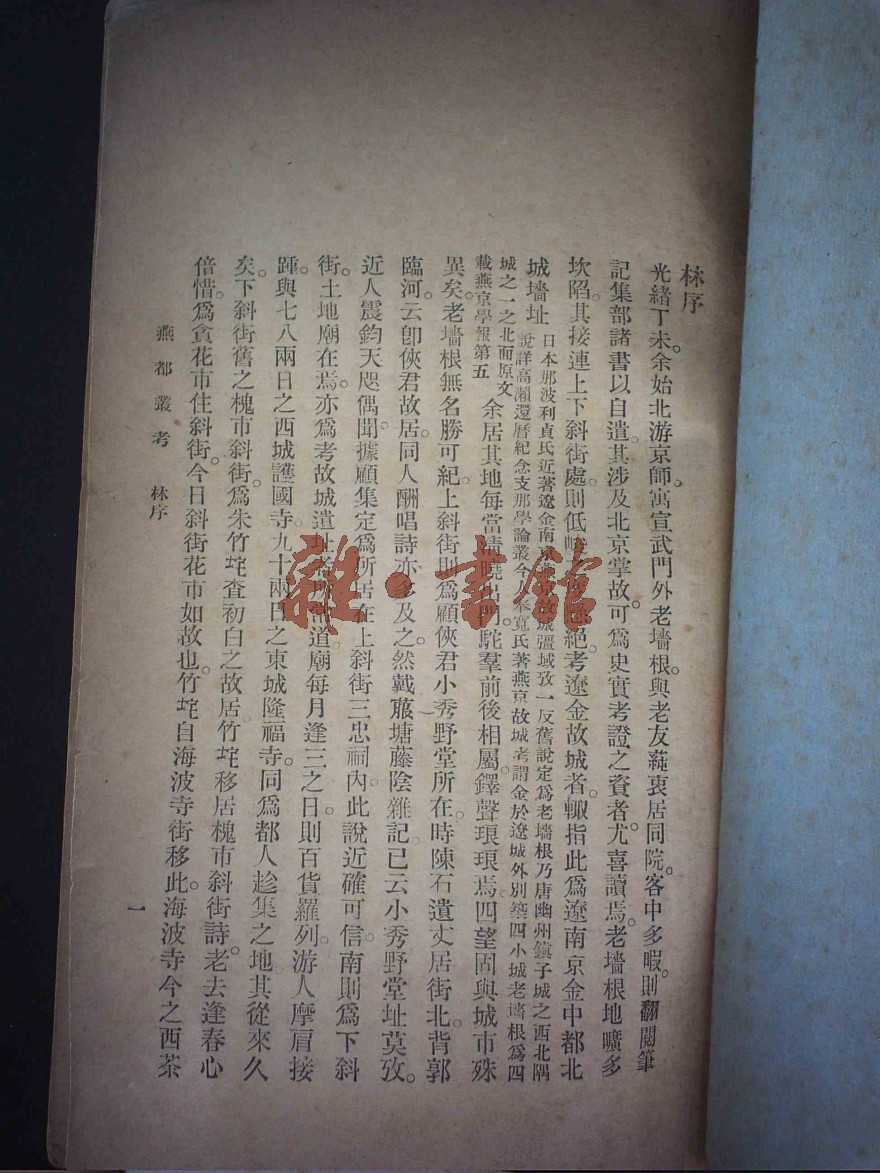 林序
光緒丁未。余始北游京師。寓宣武門外老墻根。與老友蒓衷居同院。客中多暇。則翻閱筆
記集部諸書以自遣。其涉及北京掌故。可爲史實考證之資者。尤喜讀焉。老墻根地曠多
坎陷。其接連上下斜街處。則低峻懸絕。考遼金故城者。輙指此爲遼南京金中都北
城墻址
日本那波利貞氏近著遼金南京燕京故城疆域攷一反舊說定爲老墻根乃唐幽州鎭子城之西北隅
說詳高瀨還曆紀念支那學論叢今人奉寬氏著燕京故城考謂金於遼城外別築四小城老墻根爲四
城之一之北面原文
載燕京學報第五
余居其地每當淸曉出門。駝羣前後相屬。鐸聲琅琅焉。四望固與城市殊
異矣。老墻根無名勝可紀。上斜街則爲顧俠君小秀野堂所在。時陳石遺丈居街北。背郭
臨河。云卽俠君故居。同人酬唱詩亦多及之。然戴菔塘藤陰雜記。已云小秀野堂址莫攷。
近人震鈞天咫偶聞。據顧集定爲所居在上斜街三忠祠內。此說近確可信。南則爲下斜
街。土地廟在焉。亦爲考故城遺址者所常道。廟每月逢三之日。則百貨羅列。游人摩肩接
踵。與七八兩日之西城護國寺。九十兩日之東城隆福寺。同爲都人趁集之地。其從來久
矣。下斜街舊之槐市斜街。爲朱竹垞査初白之故居。竹垞移居槐市斜街詩。老去逢春心
倍惜。爲貪花市住斜街。今日斜街花市如故也。竹垞自海波寺街移此。海波寺今之西茶
燕都叢考 林序 一
雜·書館